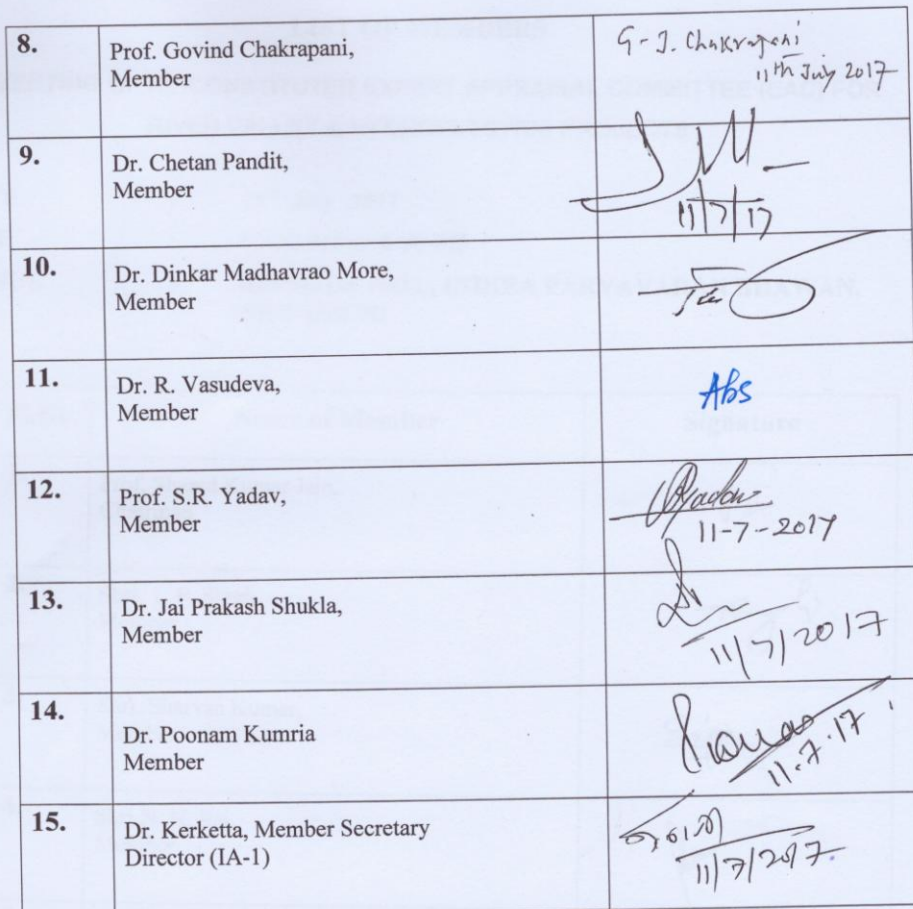 8.
Prof. Govind Chakrapani,
Member
G. J. Chakrapani
11th July 2017
9.
Dr. Chetan Pandit,
Member
11/7/17
10.
Dr. Dinkar Madhavrao More,
Member
11.
Dr. R. Vasudeva,
Member
Abs
12.
Prof. S.R. Yadav,
Member
SRYadav
11-7-2017
13.
Dr. Jai Prakash Shukla,
Member
11/7/2017
14.
Dr. Poonam Kumria
Member
11.7.17
15.
Dr. Kerketta, Member Secretary
Director (IA-1)
11/7/2017